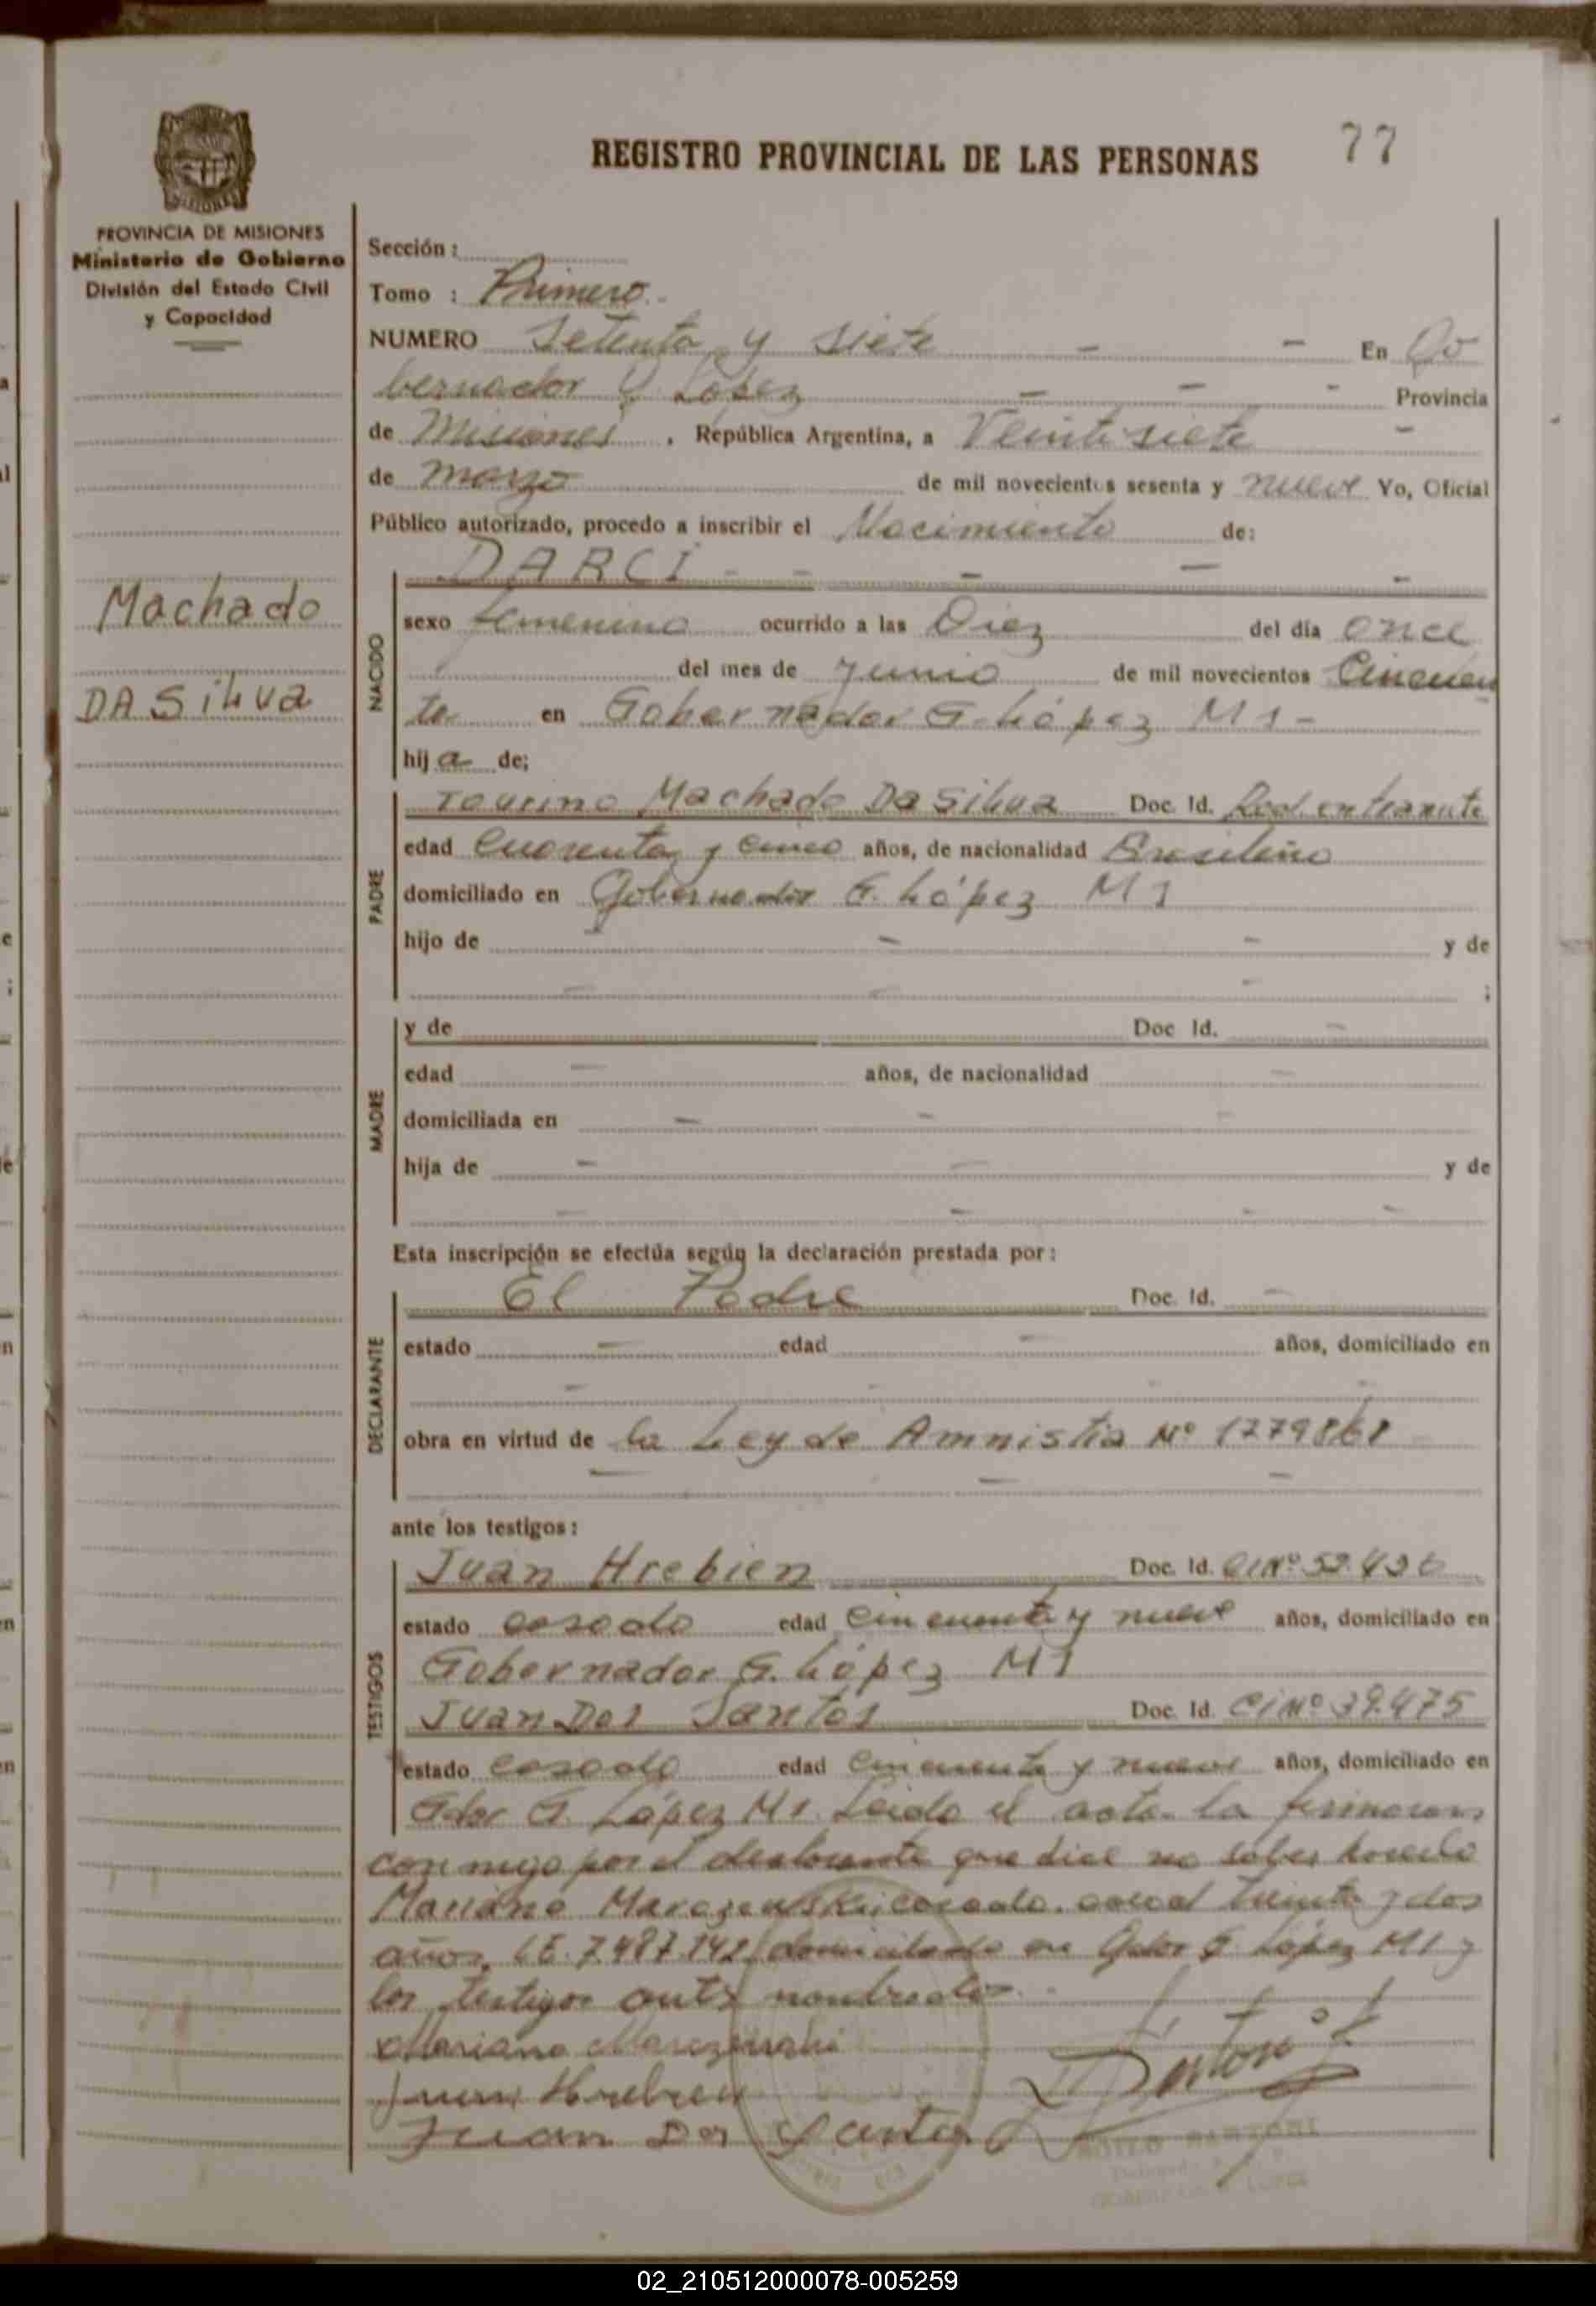 77
REGISTRO PROVINCIAL DE LAS PERSONAS
PROVINCIA DE MISIONES
Ministerio de Gobierno
División del Estado Civil
y Capacidad
Machado
DA Silva
Sección :
Tomo : Primero.-
NUMERO Setenta y siete - - En Go
bernador G López - - - Provincia
de Misiones , República Argentina, a Veintisiete -
de marzo de mil novecientos sesenta y nueve Yo, Oficial
Público autorizado, procedo a inscribir el Nacimiento de:
NACIDO
DARCI - - - - -
sexo femenino ocurrido a las Diez del día once
del mes de junio de mil novecientos Cincuen
ta en Gobernador G. López M1 -
hija de;
PADRE
Machado Da Silva Doc. Id.
edad Cuarenta y cinco años, de nacionalidad Brasileño
domiciliado en Gobernador G. López M1
hijo de - - y de
- - - ;
MADRE
y de Doc Id. -
edad - años, de nacionalidad -
domiciliada en - - -
hija de - - y de
- - - -
Esta inscripción se efectúa según la declaración prestada por :
DECLARANTE
El Padre Doc. Id. -
estado - edad - años, domiciliado en
- - - -
obra en virtud de la Ley de Amnistia Nº
- - -
ante los testigos :
TESTIGOS
Juan Hrebien Doc. Id. CI Nº 52.436
estado casado edad cincuenta y nueve años, domiciliado en
Gobernador G. López M1
Juan Dos Santos Doc. Id. CI Nº 39.475
estado casado edad cincuenta y nueve años, domiciliado en
Gdor G. López M1. Leida el acta la firman
conmigo por el declarante que dice no saber hacerlo
Mariano casado. edad treinta y dos
años, LE. 7.487.142 domiciliado en Gdor G. López M1 y
los testigos antes nombrados.
Mariano
Juan Hrebien
Juan Dos Santos
02_210512000078-005259